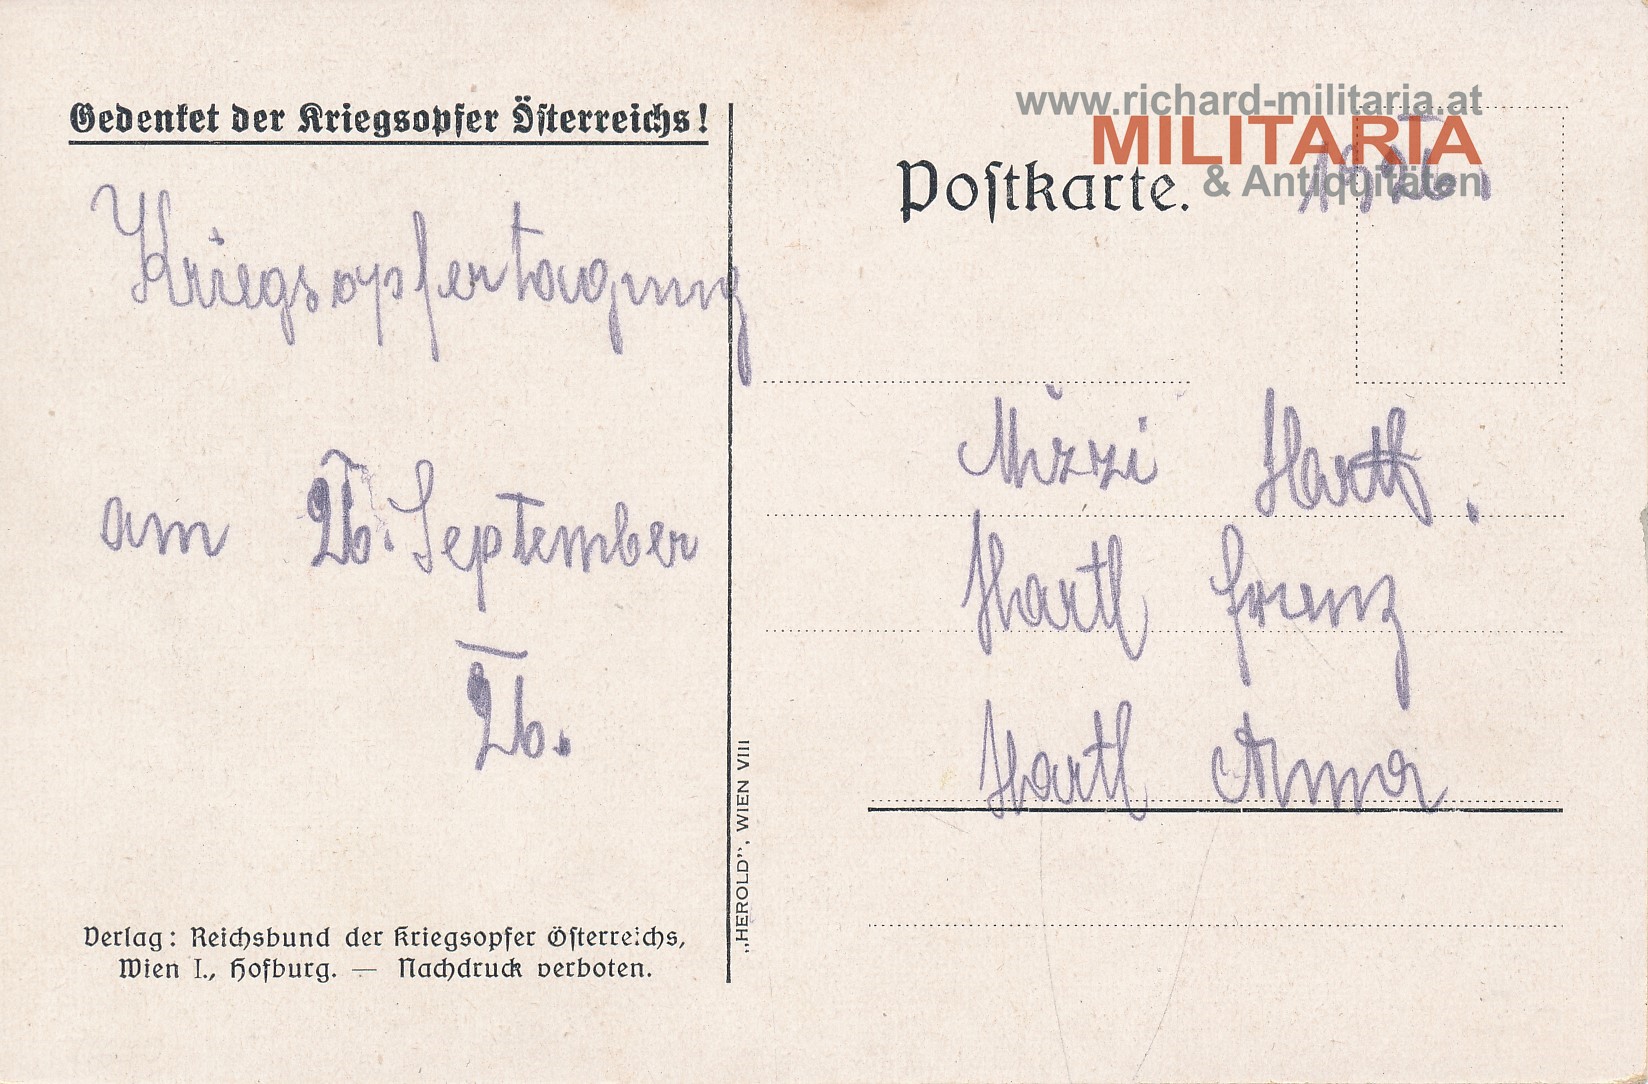 Gedenket der Kriegsopfer Österreichs!
Kriegsopfertagung
am 26. September
26.
Verlag: Reichsbund der Kriegsopfer Österreichs,
Wien I., Hofburg. — Nachdruck verboten.
„HEROLD”, WIEN VIII
www.richard-militaria.at
MILITARIA
& Antiquitäten
Postkarte.
Mizzi Hartl.
Hartl Franz
Hartl Anna